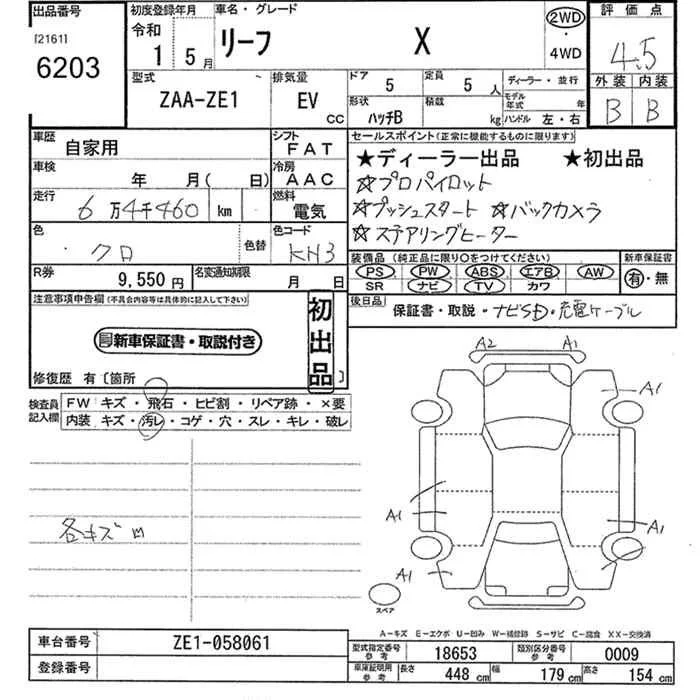 出品番号
[2161]
6203
初度登録年月
令和
1 5月
車名・グレード
リーフ X
2WD
・
4WD
評価点
4.5
外装 内装
B B
型式
ZAA-ZE1
排気量
EV
CC
ドア 5
定員 5 人
ディーラー・並行
形状 ハッチB
積載 kg
モデル年式 年
ハンドル 左・右
車歴 自家用
シフト FAT
車検 年 月( 日)
冷房 AAC
走行 6万4千460 km
燃料 電気
色 クロ
色替
色コード KH3
R券 9,550円
名変通知期限 月 日
セールスポイント(正常に機能するものに限ります)
★ディーラー出品 ★初出品
☆プロパイロット
☆プッシュスタート ☆バックカメラ
☆ステアリングヒーター
装備品(純正品に限り○をつけてください)
PS PW ABS エアB AW
SR ナビ TV カワ
新車保証書
有・無
後日品
保証書・取説・ナビSD・充電ケーブル
注意事項申告欄(不具合内容等は具体的に記入して下さい)
新車保証書・取説付き
初出品
修復歴 有〔箇所 〕
検査員記入欄
FW キズ・飛石・ヒビ割・リペア跡・×要
内装 キズ・汚レ・コゲ・穴・スレ・キレ・破レ
各キズ凹
A2 A1
A1
A1
A1
A1
スペア
A-キズ E-エクボ U-凹み W-補修跡 S-サビ C-腐食 XX-交換済
車台番号 ZE1-058061
登録番号
型式指定番号 参考 18653
類別区分番号 参考 0009
車庫証明用 参考
長さ 448 cm
幅 179 cm
高さ 154 cm